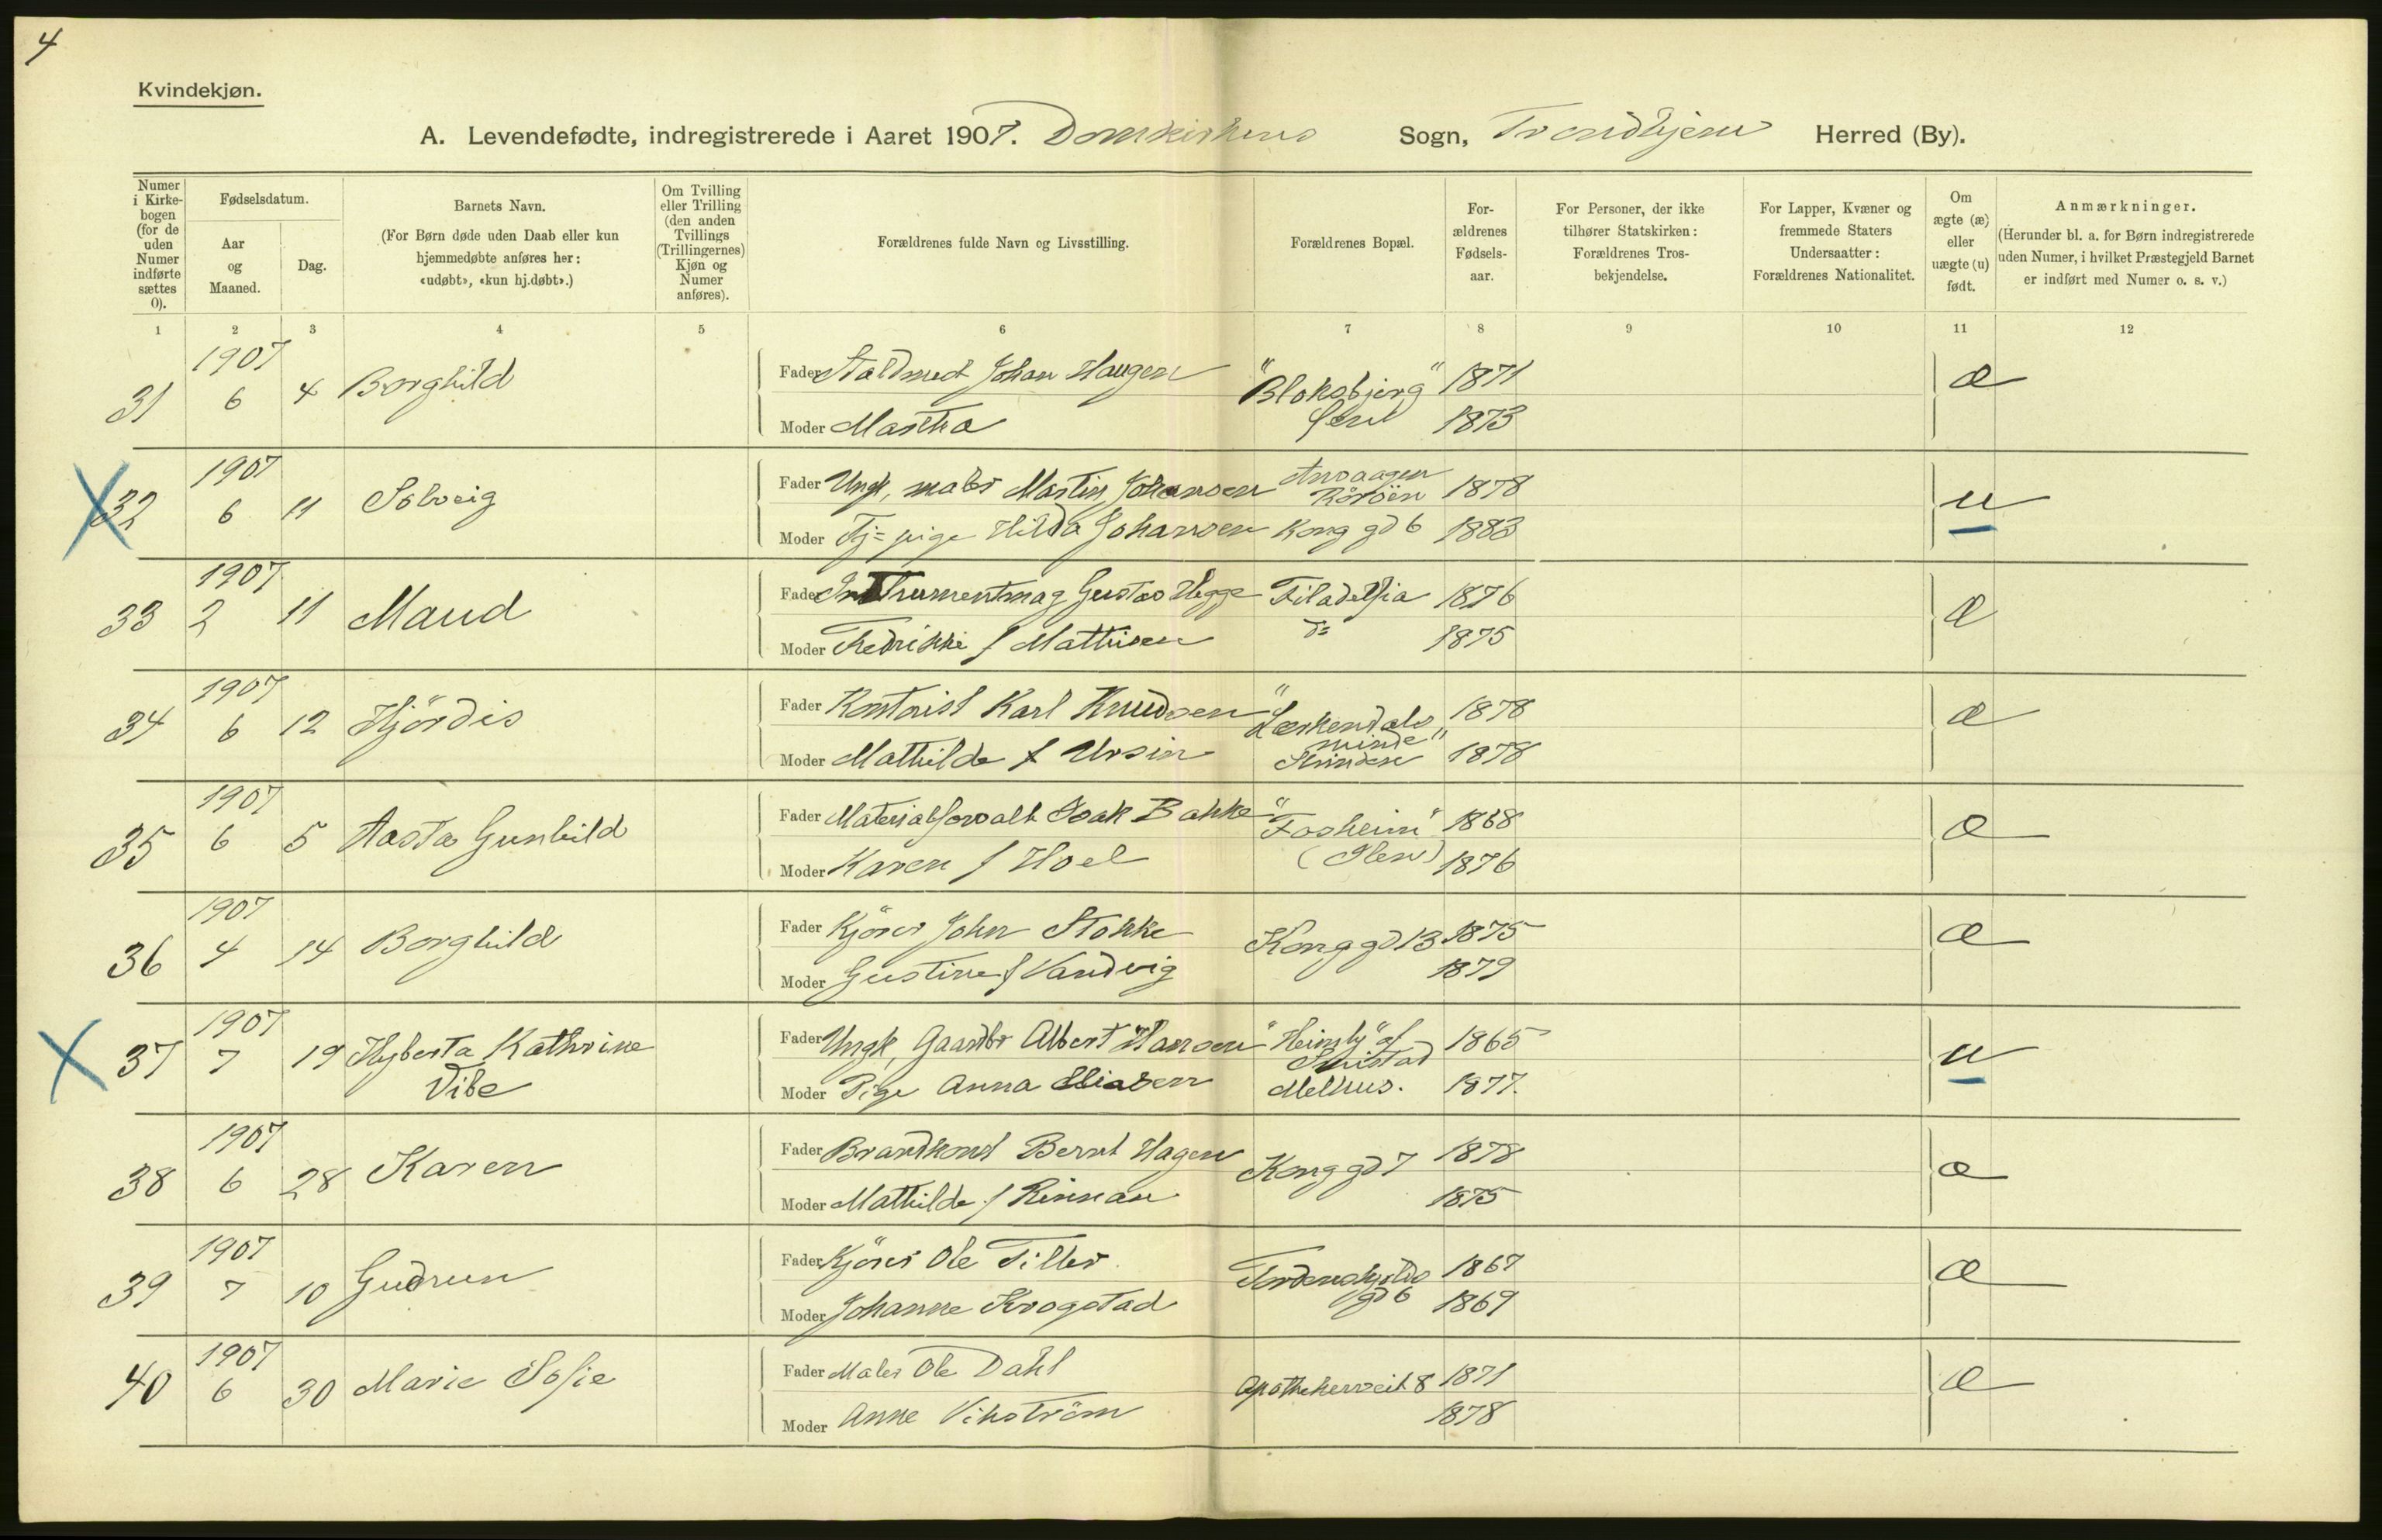 4
Kvindekjøn.
A. Levendefødte, indregistrerede i Aaret 1907. Domkirkens Sogn, Trondhjem Herred (By).
Numer i Kirkebogen (for de uden Numer indførte sættes 0).
Fødselsdatum.
Aar og Maaned.
Dag.
Barnets Navn.
(For Børn døde uden Daab eller kun hjemmedøbte anføres her: «udøbt», «kun hj.døbt».)
Om Tvilling eller Trilling (den anden Tvillings (Trillingernes) Kjøn og Numer anføres).
Forældrenes fulde Navn og Livsstilling.
Forældrenes Bopæl.
For-ældrenes Fødsels-aar.
For Personer, der ikke tilhører Statskirken: Forældrenes Tros-bekjendelse.
For Lapper, Kvæner og fremmede Staters Undersaatter: Forældrenes Nationalitet.
Om ægte (æ) eller uægte (u) født.
Anmærkninger.
(Herunder bl. a. for Børn indregistrerede uden Numer, i hvilket Præstegjeld Barnet er indført med Numer o. s. v.)
1 2 3 4 5 6 7 8 9 10 11 12
1907
31 6 4 Borghild
Fader Johan Haugen "Bloksbjerg" 1871 æ
Moder Martha 1873
1907
X 32 6 11 Solveig
Fader Ungk. maler Martin Johansen 1878 u
Moder Tj=pige Hilda Johansen Kong gd 6 1883
1907
33 2 11 Maud
Fader Instrumentmag Gustav Hegge Filadelfia 1876 æ
Moder Fredrikke f Mathisen do 1875
1907
34 6 12 Hjördis
Fader Kontorist Karl Knudsen "Lerkendals 1878 æ
minde"
Moder Mathilde f Ursin Strinden 1878
1907
35 6 5 Aasta Gunhild
Fader Materialforvalt Isak Bakke "Fosheim" 1868 æ
Moder Karen f Hoel (Ilen) 1876
1907
36 4 14 Borghild
Fader Kjörer John Stokke Kong gd 13 1875 æ
Moder Gustine f Vandvig 1879
1907
X 37 7 19 Hyberta Kathrine
Vibe
Fader Ungk. Gaardbr Albert Hansen "Heimly" af 1865 u
Moder Pige Anna Eliasen Melhus. 1877.
1907
38 6 28 Karen
Fader Brandkonst Bernt Hagen Kong gd 7 1878 æ
Moder Mathilde f Rinnan 1875
1907
39 7 10 Gudrun
Fader Kjörer Ole Tiller Tordenskjolds 1867 æ
gd 6
Moder Johanne Krogstad 1869
1907
40 6 30 Marie Sofie
Fader Maler Ole Dahl Apothekerveit 8 1871 æ
Moder Anne Vikström 1878